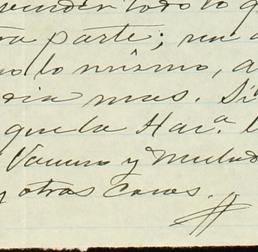 vender todo lo q
ra parte; un a
o lo mismo, a
dia mas. Si
que la Har.ª l
Vacuno y Mulad
y otras cosas.